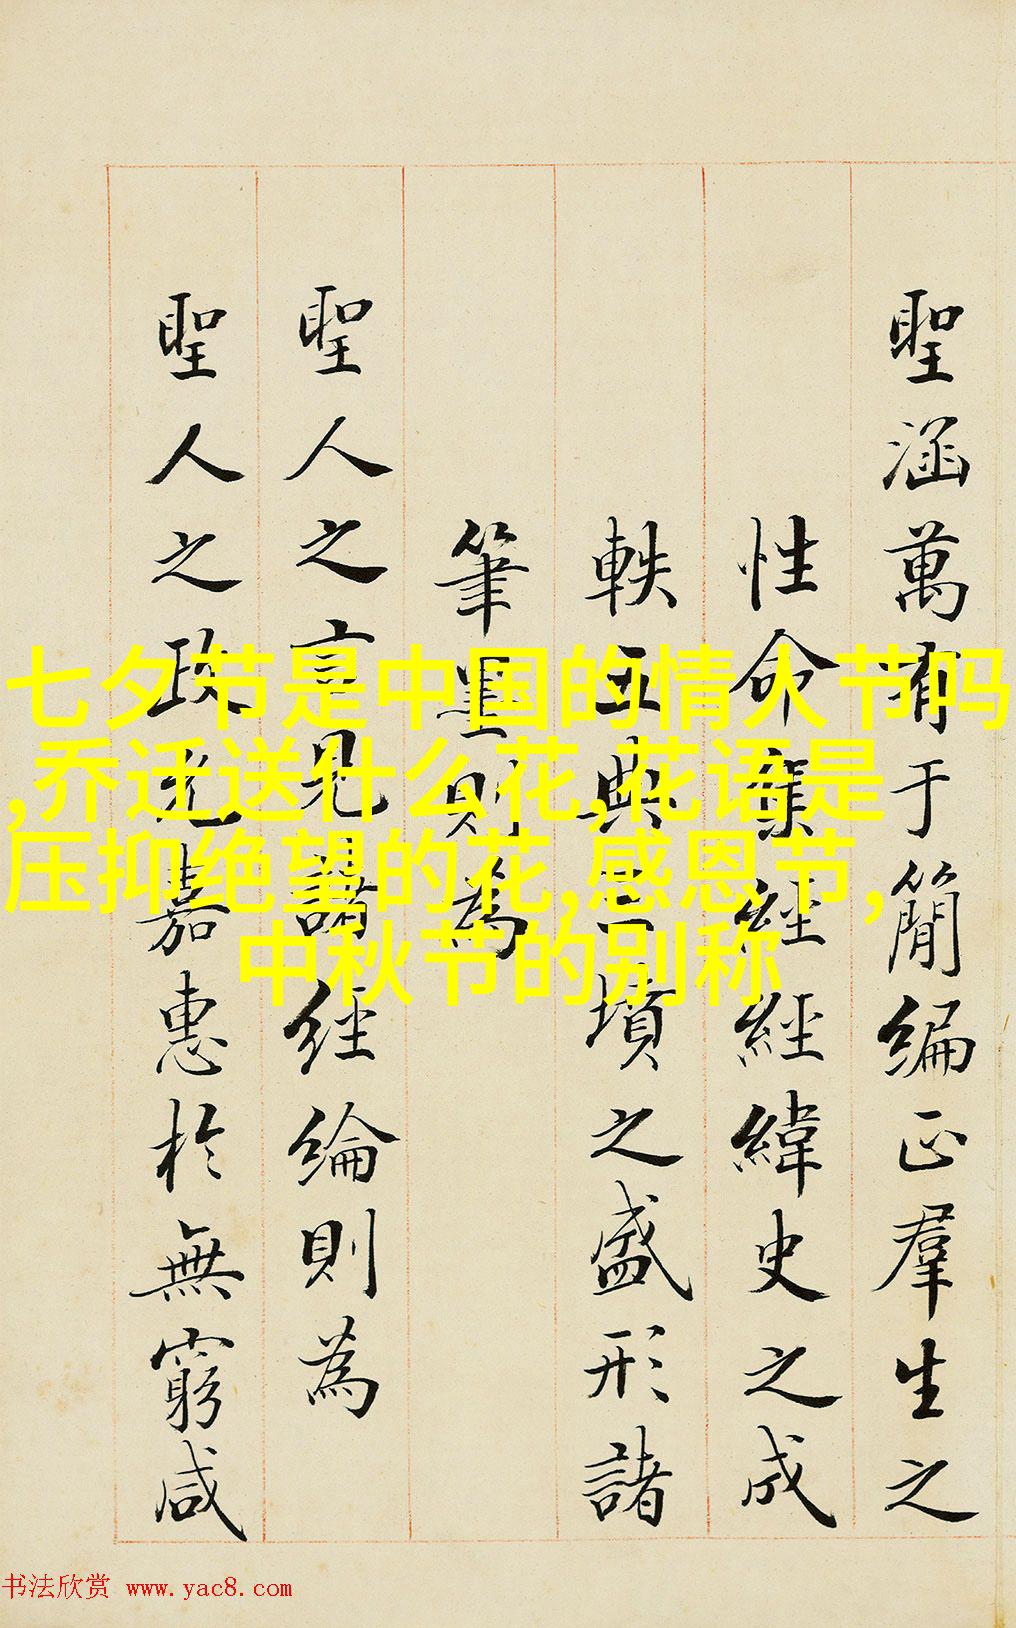 聖涵萬有于簡編正羣生之
性命集經經緯史之成
軼五典三墳之盛形諸
筆墨則為
聖人之言見諸經綸則為
聖人之政嘉惠於無窮咸
七夕节是中国的情人节吗
,乔迁送什么花,花语是
压抑绝望的花,感恩节,
中秋节的别称
书法欣赏 www.yac8.com